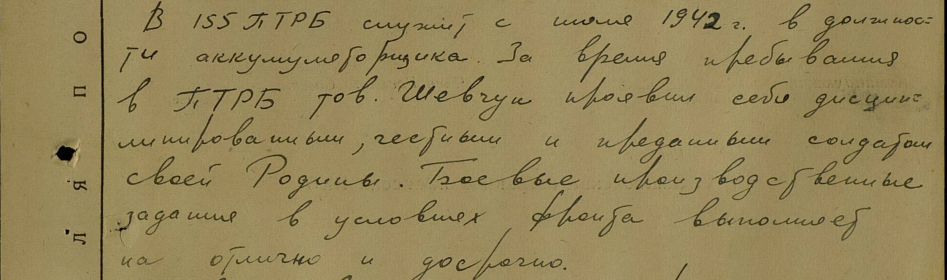 В 155 ПТРБ служит с июля 1942 г. в должнос=
ти аккумуляторщика. За время пребывания
в ПТРБ тов. Шевчук проявил себя дисцип=
линированным, честным и преданным солдатом
своей Родины. Боевые производственные
задания в условиях фронта выполняет
на отлично и досрочно.
О
П
Я
Л